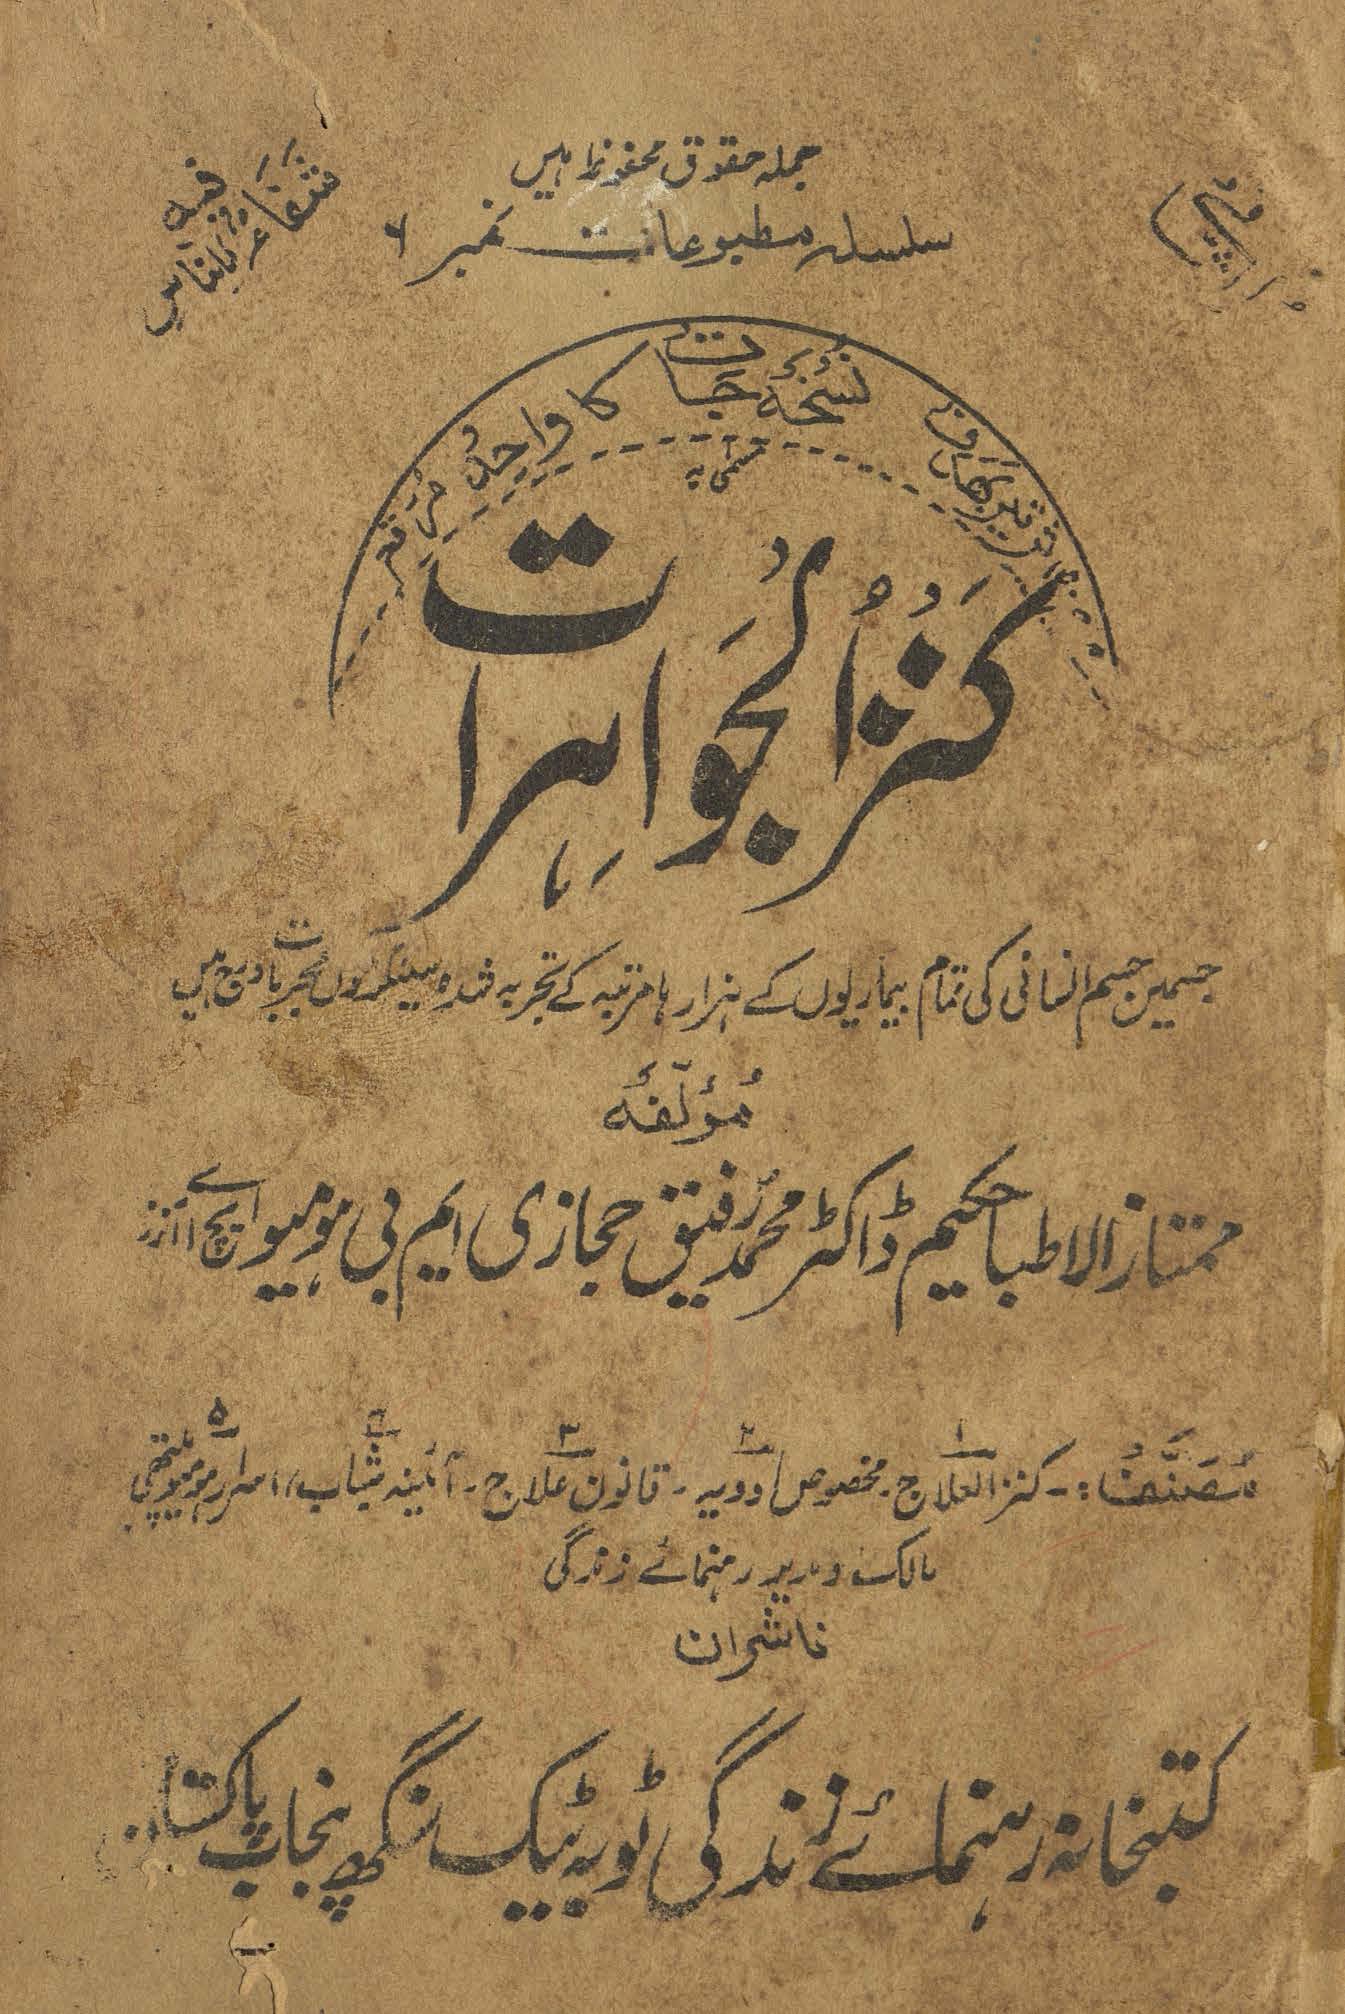 جملہ حقوق محفوظ ہیں
سلسلہ مطبوعات نمبر ۶
فیہ شفاءٌ للناس
نسخہ جات کا واحد مرقع
مسمی بہ
کَنزُ الجَواہرات
جسمیں جسم انسانی کی تمام بیماریوں کے ہزارہا مرتبہ کے تجربہ شدہ سینکڑوں مجربات درج ہیں
مُؤلّفہٗ
ممتاز الاطبا حکیم ڈاکٹر محمد رفیق حجازی ایم بی ہومیو ایچ اے آنرز
مُصَنّفہٗ :۔ ۱ کنز العلاج ۔ ۲ مخصوص ادویہ ۔ ۳ قانون علاج ۔ ۴ آئینہ شباب، ۵ اسرار ہومیوپیتھی
مالک و مدیر رہنمائے زندگی
ناشران
کتبخانہ رہنمائے زندگی ٹوبہ ٹیک سنگھ پنجاب پاکستان